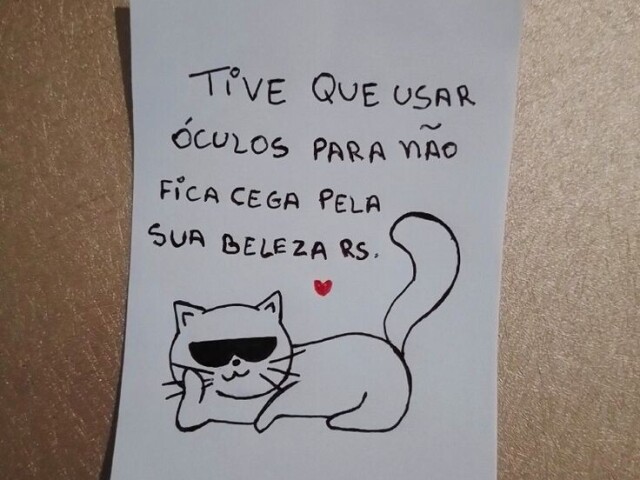 TIVE QUE USAR
ÓCULOS PARA NÃO
FICA CEGA PELA
SUA BELEZA RS.